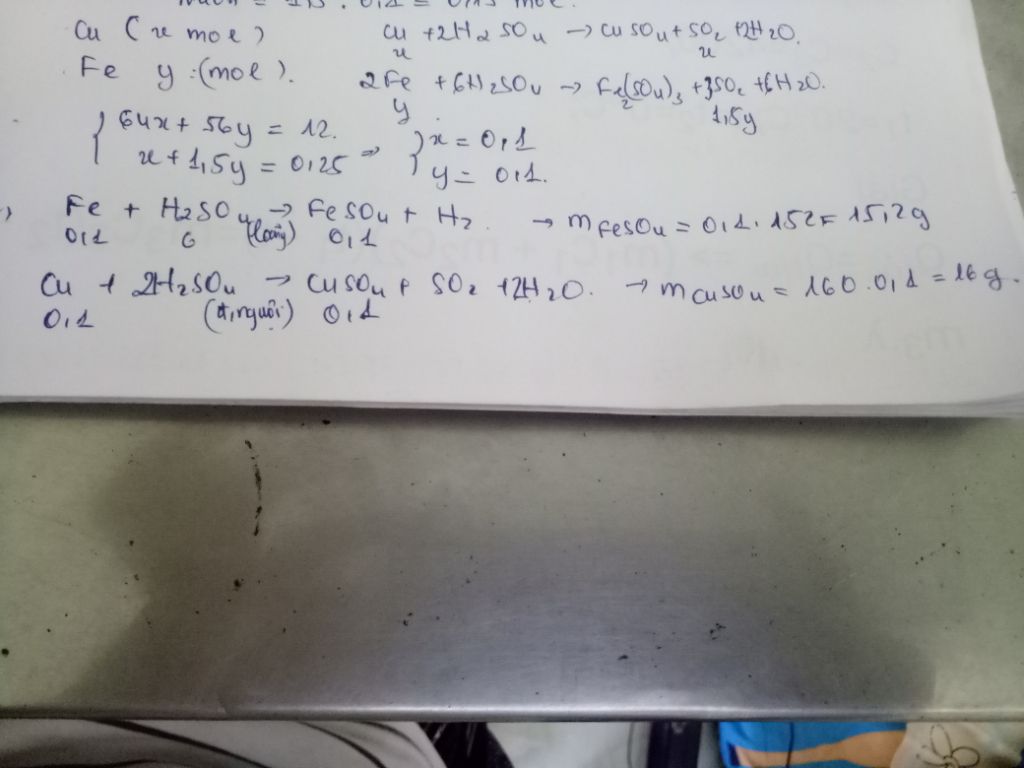 = 1,5 . 0,1 = 0,15 mol.
Cu ( x mol ) Cu + 2H2SO4 → CuSO4 + SO2 + 2H2O.
x x
Fe y (mol). 2Fe + 6H2SO4 → Fe2(SO4)3 + 3SO2 + 6H2O.
y 1,5y
{ 64x + 56y = 12.
x + 1,5y = 0,25 => } x = 0,1
y = 0,1.
Fe + H2SO4 → FeSO4 + H2. → mFeSO4 = 0,1 . 152 = 15,2g
0,1 (loãng) 0,1
Cu + 2H2SO4 → CuSO4 + SO2 + 2H2O. → mCuSO4 = 160 . 0,1 = 16g.
0,1 (đ, nguội) 0,1